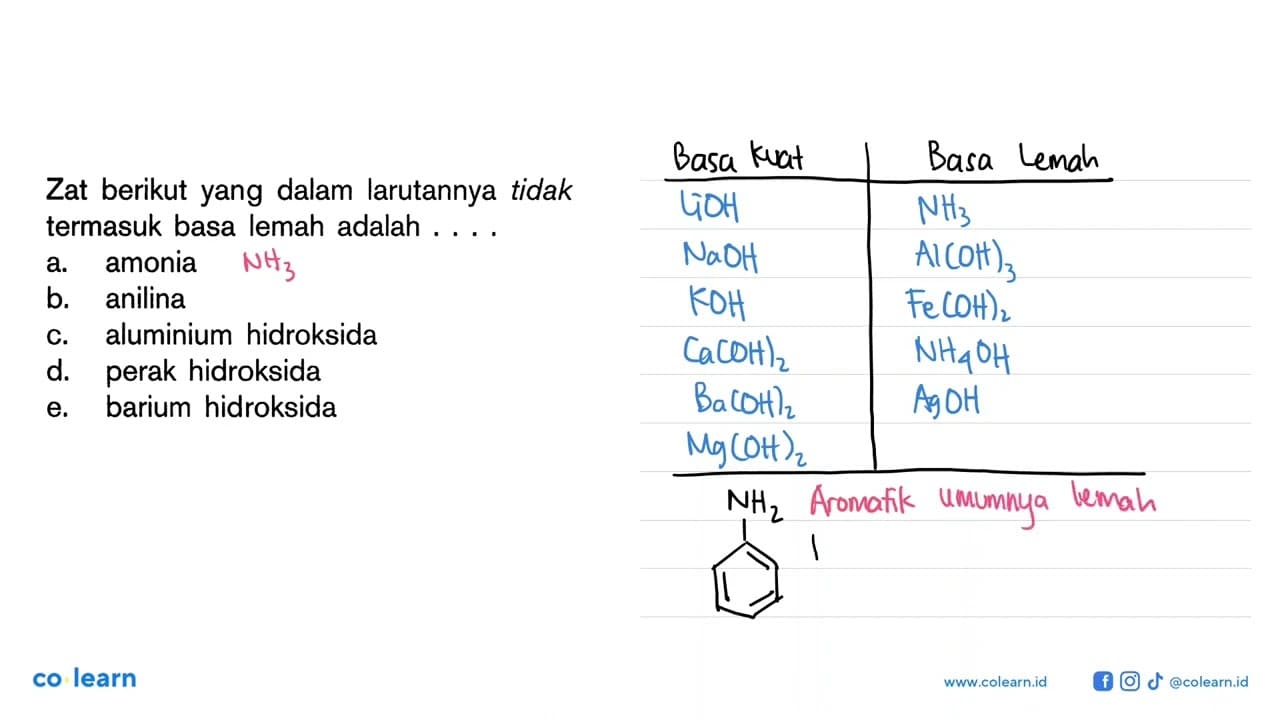 Zat berikut yang dalam larutannya tidak
termasuk basa lemah adalah . . . .
a. amonia NH3
b. anilina
c. aluminium hidroksida
d. perak hidroksida
e. barium hidroksida
Basa Kuat Basa Lemah
LiOH NH3
NaOH Al(OH)3
KOH Fe(OH)2
Ca(OH)2 NH4OH
Ba(OH)2 AgOH
Mg(OH)2
NH2 Aromatik umumnya lemah
co learn
www.colearn.id @colearn.id